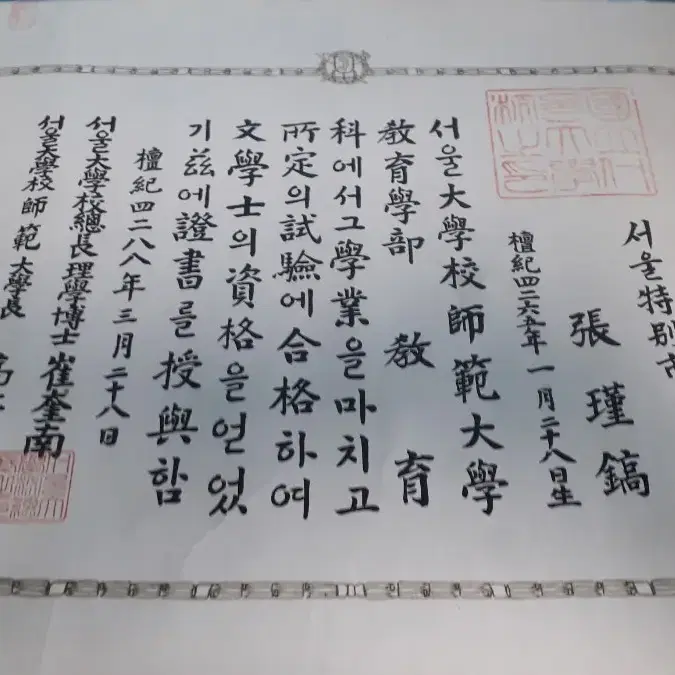 서울特別市
張瑾鎬
檀紀四二六五年一月二十八日生
서울大學校師範大學
敎育學部 敎育
科에서그學業을마치고
所定의試驗에合格하여
文學士의資格을얻었
기玆에證書를授與함
檀紀四二八八年三月二十八日
서울大學校總長理學博士 崔奎南
서울大學校師範大學長